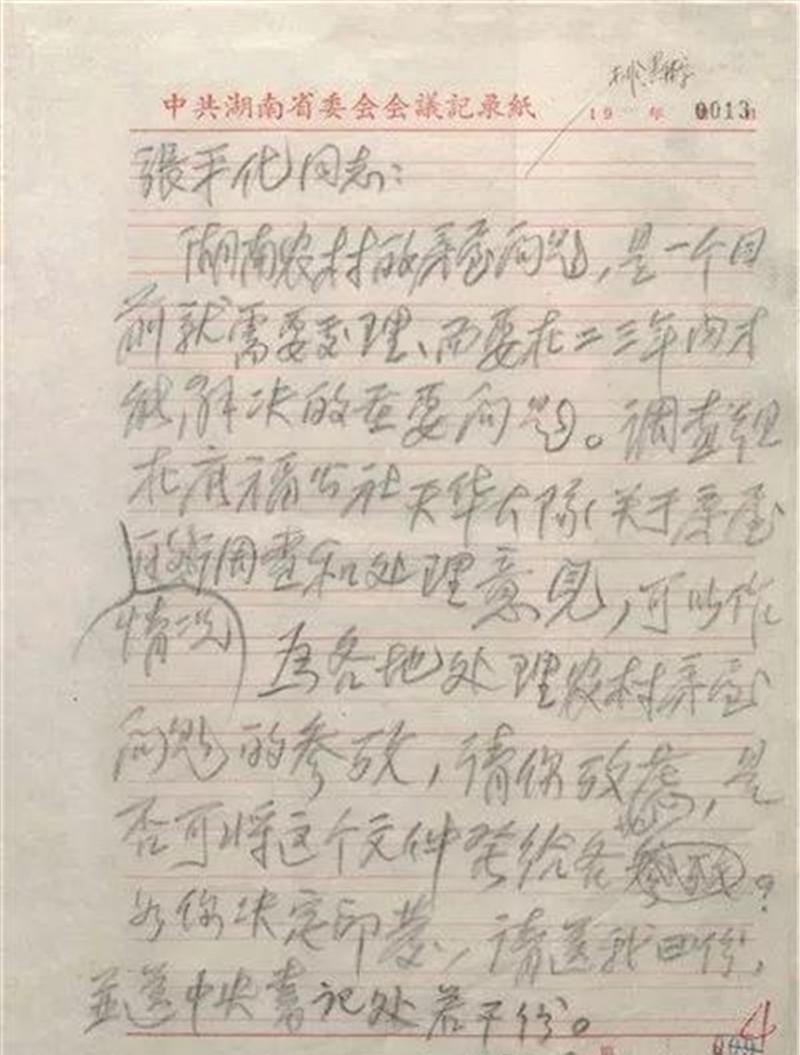 中共湖南省委会会議記录紙
19 年 0013
張平化同志：
湖南农村的房屋问题，是一个目
前就需要处理、而要在二三年内才
能解决的重要问题。调查组
在广福公社天华大队关于房屋
情况
的调查和处理意见，可以作
为各地处理农村房屋
问题的参攷，请你攷虑，是
否可将这个文件發给各地参攷？
如你决定印發，请送我四份，
並送中央書记处若干份。